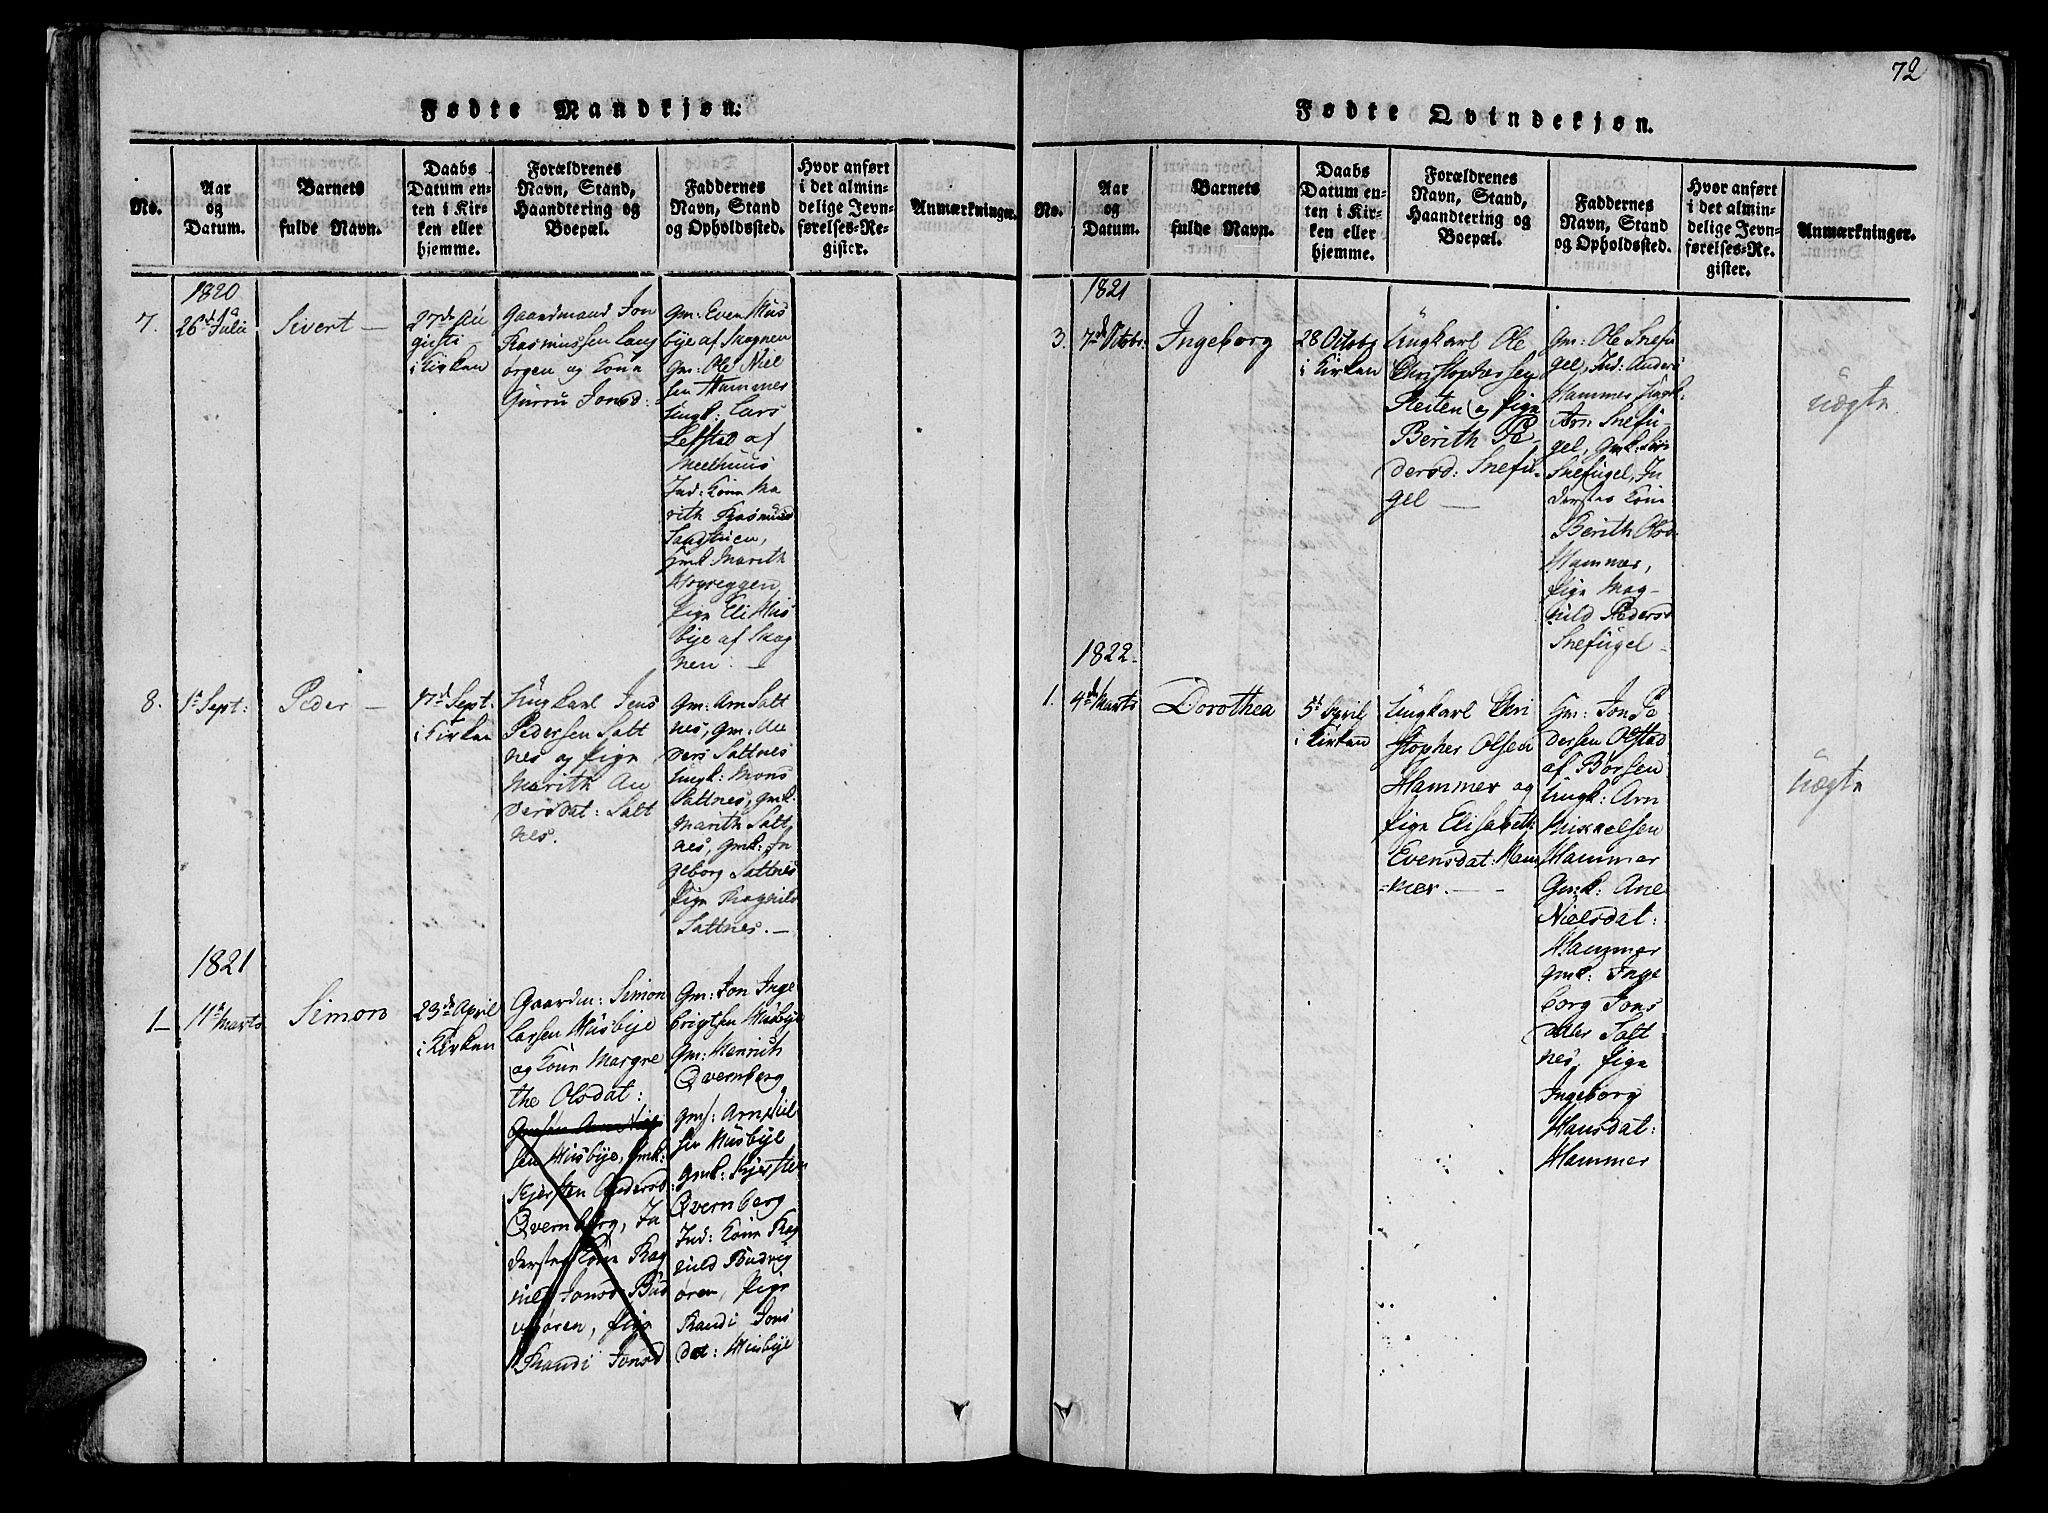 72
Fødte Mandkjøn:
No.
Aar
og
Datum.
Barnets
fulde Navn.
Daabs
Datum en-
ten i Kir-
ken eller
hjemme.
Forældrenes
Navn, Stand,
Haandtering og
Boepæl.
Faddernes
Navn, Stand
og Opholdssted.
Hvor anført
i det almin-
delige Jevn-
førelses-Re-
gister.
Anmærkninger.
1820
7.
26d Julii
Sivert —
27de Au
gusti
i Kirken
Gaardmand Jon
Rasmussen Lang
örgen og Kone
Gurru Jonsd:
Gm: Even Hus
bye af Skognen
Gm: Ole Niel
sen Hammer
Ungk: Lars
Lefstad af
Meelhuus
Ind: Kone Ma
rith Rasmusd
Gmk Marith
Pige Eli Hus
bye af Skog
nen: —
8.
1t Sept:
Peder —
17d Sept.
i Kirken
Ungkarl Jens
Pedersen Salt
nes og Pige
Marith An
dersdat: Salt
nes.
Gm: Arn Salt
nes, Gm: An
ders Saltnes
Ungk: Mons
Saltnes, Gmk:
Marith Salt
nes, Gmk: In
geborg Saltnes
Pige Ragnild
Saltnes. —
1821
1 —
11t Marts
Simon
23de April
i Kirken
Gaardm: Simon
Larsen Husbye
og Kone Margre
the Olsdat:
sen Husbye, Gmk:
Kjersten Andersd:
Qvernberg, In
dersten Kone Rag
nild Jonsd Bud
vigören, Pige
Randi Jonsd
Gm: Jon Inge
brigtsen Husbye
Gm: Henrich
Qvernberg
Gm: Arn Niel
sen Husbye
Gmk: Kjersten
Qvernberg
Ind: Kone Rag
nild Budvig
ören, Pige
Randi Jons
dat: Husbye
Fødte Qvindekjøn.
No.
Aar
og
Datum.
Barnets
fulde Navn.
Daabs
Datum en-
ten i Kir-
ken eller
hjemme.
Forældrenes
Navn, Stand,
Haandtering og
Boepæl.
Faddernes
Navn, Stand
og Opholdssted.
Hvor anført
i det almin-
delige Jevn-
førelses-Re-
gister.
Anmærkninger.
1821
3.
7de Octobr:
Ingeborg
28 Octobr
i Kirken
Ungkarl Ole
Christophersen
Sleiten og Pige
Berith Pe
dersd: Snefu-
gel —
Gm: Ole Snefu
gel, Ind: Anders
Hammer Ungk:
Arn Snefu-
gel, Gmk: Siri
Snefugel, In
dersten Kone
Berith Olsd
Hammer,
Pige Mag-
nild Pedersd
Snefugel —
uægte
1822.
1.
4de Marts
Dorothea
5t April
i Kirken
Ungkarl Chri
stopher Olsen
Hammer og
Pige Elisabeth
Evensdat: Ham
=mer. — —
Gm: Jon Pe
dersen Olstad
af Börsen
Ungk: Arn
Mikkelsen
Hammer
Gmk: Ane
Nielsdat:
Hammer
Gmk: Inge
borg Jons
datter Salt
nes, Pige
Ingeborg
Hansdat:
Hammer
uægte